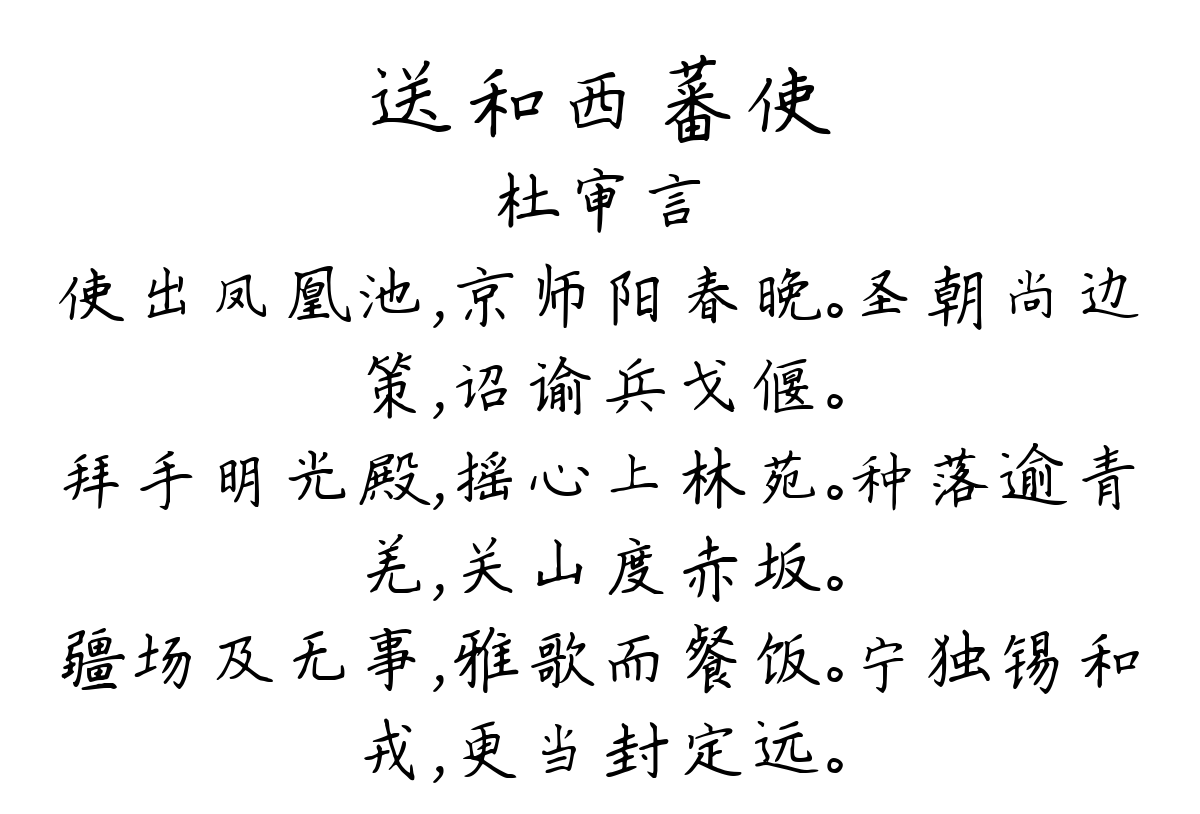 送和西蕃使
杜审言
使出凤凰池,京师阳春晚。圣朝尚边
策,诏谕兵戈偃。
拜手明光殿,摇心上林苑。种落逾青
羌,关山度赤坂。
疆场及无事,雅歌而餐饭。宁独锡和
戎,更当封定远。